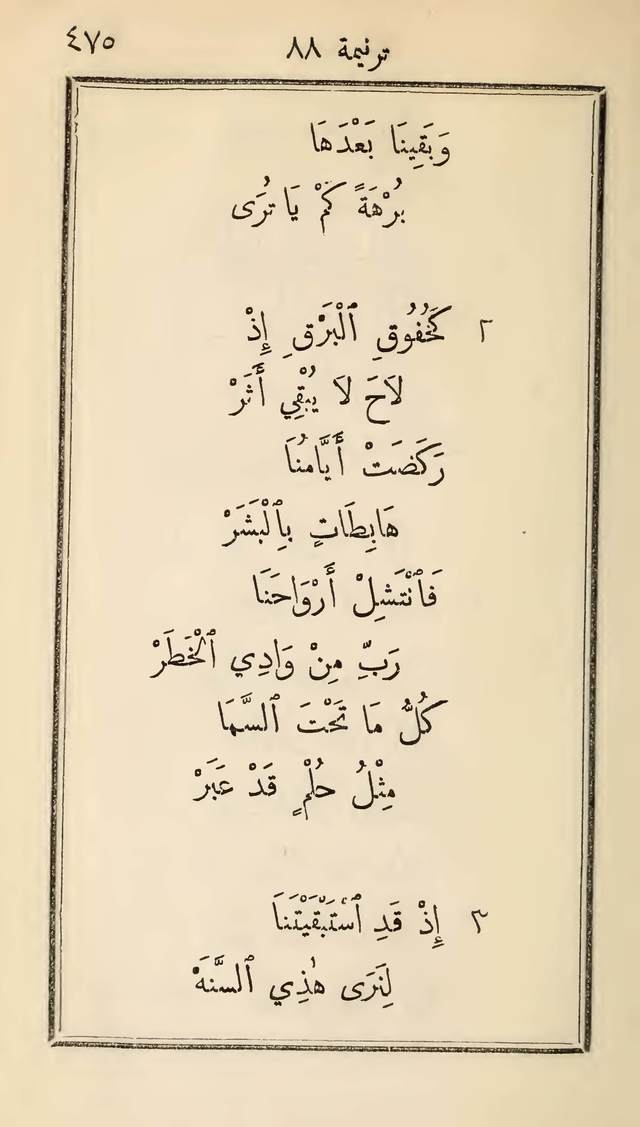 ترنيمة ٨٨ ٤٧٥
وَبَقِينَا بَعْدَهَا
بُرْهَةً كَمْ يَا تُرَى
٢ كَخُفُوقِ ٱلْبَرْقِ إِذْ
لاَحَ لاَ يُبْقِي أَثَرْ
رَكَضَتْ أَيَّامُنَا
هَابِطَاتٍ بِٱلْبَشَرْ
فَٱنْتَشِلْ أَرْوَاحَنَا
رَبِّ مِنْ وَادِي ٱلْخَطَرْ
كُلُّ مَا تَحْتَ ٱلسَّمَا
مِثْلُ حُلْمٍ قَدْ عَبَرْ
٣ إِذْ قَدِ ٱسْتَبْقَيْتَنَا
لِنَرَى هٰذِي ٱلسَّنَهْ